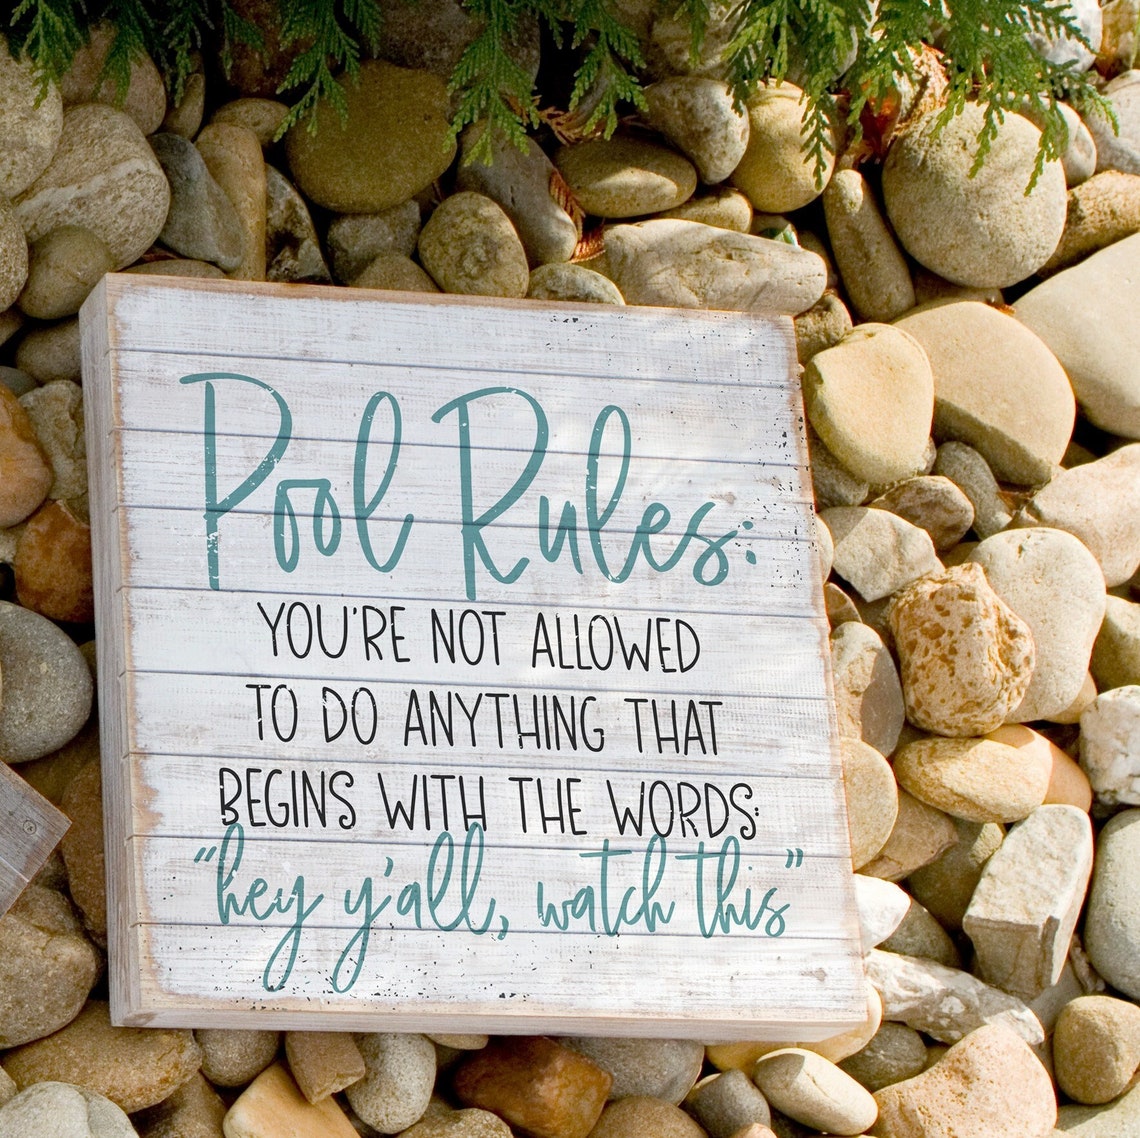 Pool Rules:
YOU'RE NOT ALLOWED
TO DO ANYTHING THAT
BEGINS WITH THE WORDS:
"hey y'all, watch this"